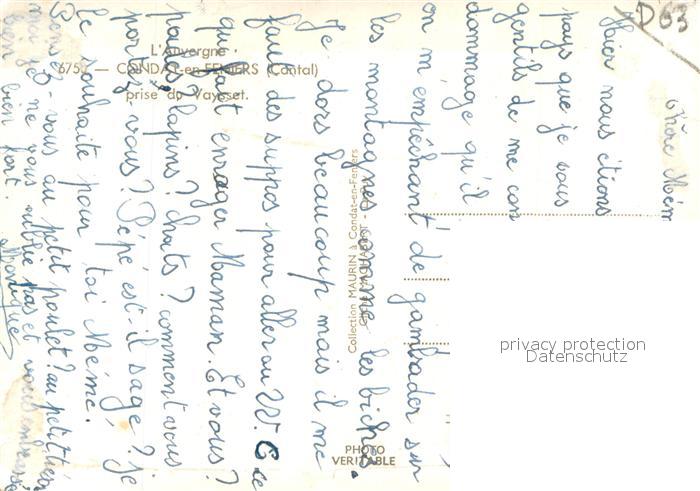 D63
chère Mém
Hier nous étions
pays que je vous
gentils de me con
dommage qu'il
on m'empêchant de gambader sur
les montagnes comme les biches.
Je dors beaucoup mais il me
faut des suppos pour aller au W.C ce
qui fait enrager Maman. Et vous?
poules? lapins? chats? comment vous
portez vous? Pépé est-il sage? je
le souhaite pour toi Mémé.
Pensez-vous au petit poulet? au petit
moi je ne vous oublie pas et vous embrasse
bien bien fort.
Monique
L'Auvergne
675 — CONDAT-en-FENIERS (Cantal)
prise du Vaysset.
Collection MAURIN à Condat-en-Feniers
PHOTO
VERITABLE
privacy protection
Datenschutz